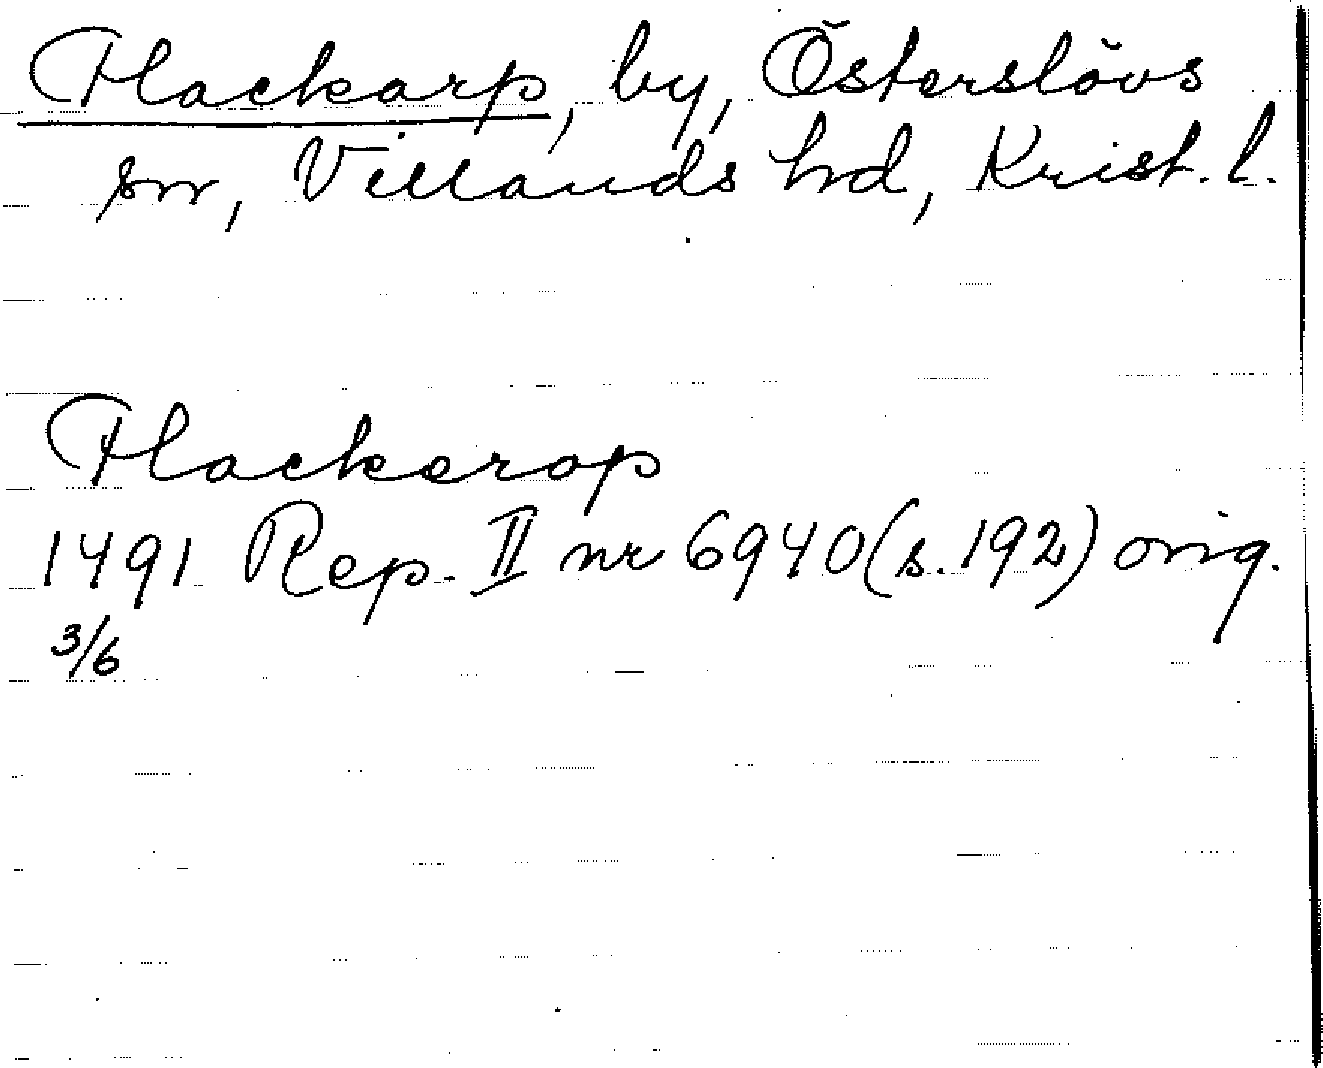 Flackarp, by, Österslövs
sn, Villands hd, Krist. l.
Flackerop
1491 Rep. II nr 6940 (s. 192) orig.
3/6